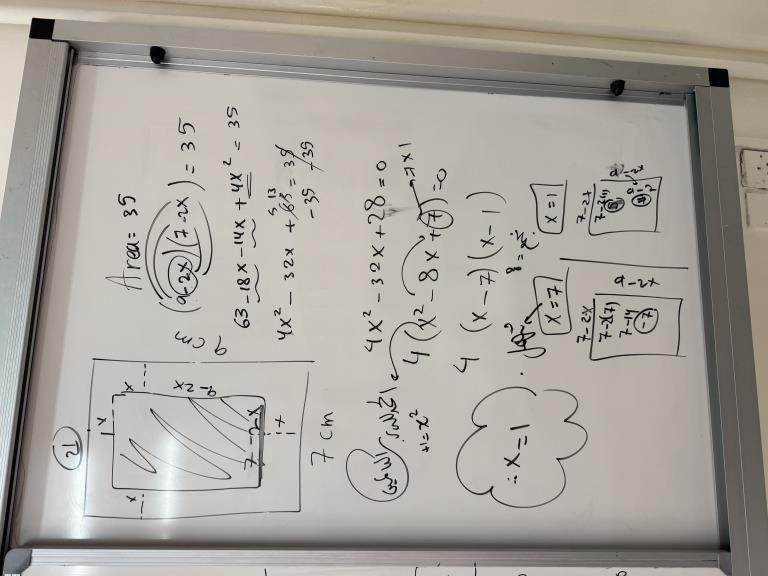 21
x
x
x
x
9-2x
7-2x
9 cm
7 cm
Area = 35
(9-2x)(7-2x) = 35
63-18x-14x+4x² = 35
4x² - 32x + 63 = 35
-35 -35
4x² - 32x + 28 = 0
4(x² - 8x + 7) = 0
7x1
4 (x-7)(x-1)
+1=x²
x=7
x=1
7-2x
7-2(7)
7-14
-7
9-2x
7-2x
7-2(1)
9-2x
∴ x=1